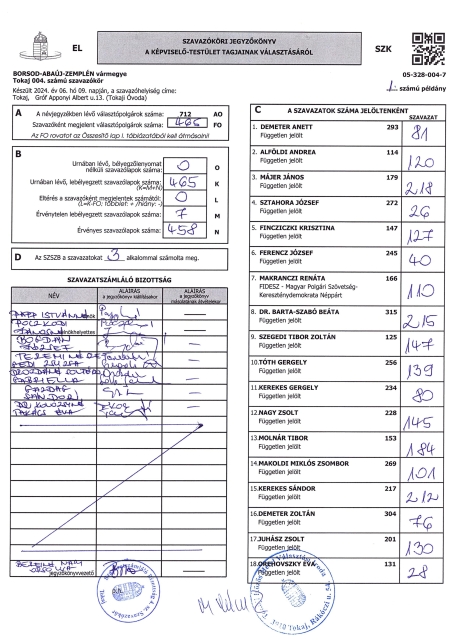 EL
SZAVAZÓKÖRI JEGYZŐKÖNYV
A KÉPVISELŐ-TESTÜLET TAGJAINAK VÁLASZTÁSÁRÓL
SZK
BORSOD-ABAÚJ-ZEMPLÉN vármegye
Tokaj 004. számú szavazókör
05-328-004-7
Készült 2024. év 06. hó 09. napján, a szavazóhelyiség címe:
Tokaj, Gróf Apponyi Albert u.13. (Tokaji Óvoda)
1. számú példány
A
A névjegyzékben lévő választópolgárok száma: 712 AO
Szavazóként megjelent választópolgárok száma: 466 FO
Az FO rovatot az Összesítő lap I. táblázatából kell átmásolni!
B
Urnában lévő, bélyegzőlenyomat
nélküli szavazólapok száma: 0 O
Urnában lévő, lebélyegzett szavazólapok száma: 465 K
(K=M+N)
Eltérés a szavazóként megjelentek számától: 0 L
(L=K-FO; többlet: + /hiány: -)
Érvénytelen lebélyegzett szavazólapok száma: 7 M
Érvényes szavazólapok száma: 458 N
D
Az SZSZB a szavazatokat 3 alkalommal számolta meg.
SZAVAZATSZÁMLÁLÓ BIZOTTSÁG
NÉV
ALÁÍRÁS
a jegyzőkönyv kiállításakor
ALÁÍRÁS
a jegyzőkönyv
másolatának átvételekor
PAPP ISTVÁNNÉ
BOGDÁN
GABRIELLA
SÁNDOR
TAKÁCS ÉVA
jegyzőkönyvvezető
C
A SZAVAZATOK SZÁMA JELÖLTENKÉNT
SZAVAZAT
1. DEMETER ANETT 293 81
Független jelölt
2. ALFÖLDI ANDREA 114 120
Független jelölt
3. MÁJER JÁNOS 179 218
Független jelölt
4. SZTAHORA JÓZSEF 272 26
Független jelölt
5. FINCZICZKI KRISZTINA 147 127
Független jelölt
6. FERENCZ JÓZSEF 245 40
Független jelölt
7. MAKRANCZI RENÁTA 166 110
FIDESZ - Magyar Polgári Szövetség-
Kereszténydemokrata Néppárt
8. DR. BARTA-SZABÓ BEÁTA 315 215
Független jelölt
9. SZEGEDI TIBOR ZOLTÁN 125 147
Független jelölt
10. TÓTH GERGELY 256 139
Független jelölt
11. KEREKES GERGELY 234 80
Független jelölt
12. NAGY ZSOLT 228 145
Független jelölt
13. MOLNÁR TIBOR 153 184
Független jelölt
14. MAKOLDI MIKLÓS ZSOMBOR 269 101
Független jelölt
15. KEREKES SÁNDOR 217 212
Független jelölt
16. DEMETER ZOLTÁN 304 76
Független jelölt
17. JUHÁSZ ZSOLT 201 130
Független jelölt
18. OREHOVSZKY ÉVA 131 28
Független jelölt